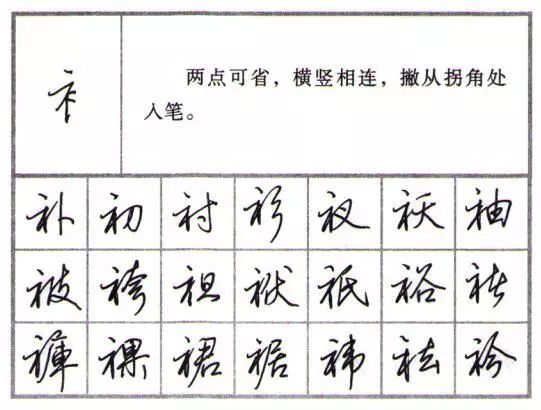 衤
两点可省，横竖相连，撇从拐角处
入笔。
补 初 衬 衫 衩 袄 袖
被 袴 袒 袱 裕
裸 裙 裾 袪